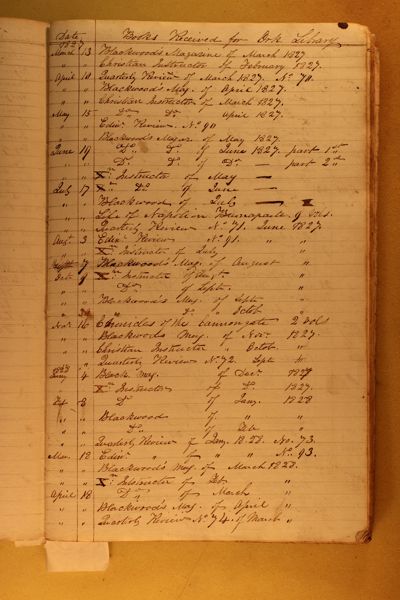 Date Books Received for Ork. Library
1827
March 13 Blackwoods Magazine of March 1827
" " Christian Instructor of February 1827.
April 10 Quarterly Review of March 1827. No 70.
" " Blackwoods Mag. of April 1827.
" " Christian Instructor of March 1827.
May 15 Do Do April 1827.
" " Edinr Review. No 90
" " Blackwoods Magaz. of May 1827.
June 19 Do Do of June 1827. part 1st
" " Do Do of Do — part 2nd
" " Xn Instructor of May —
July 17 Xn Do of June —
" " Blackwood of July —
" " Life of Napoleon Buonaparte. 9 vols.
" " Quarterly Review No 71. June 1827.
Augt 3 Edinr Review No 91. " "
" " Xn Instructor of July "
7 Blackwoods Mag. of August "
Octr 9 Xn Instructor of Augt "
" " Do of Septr "
" " Blackwoods Mag. of Septr "
" Do of Octobr "
Novr 16 Chronicles of the Cannongate 2 vols
" " Blackwoods Mag. of Novr 1827.
" " Christian Instructor " Octobr "
" " Quarterly Review No 72. Sept "
1828
Jany 4 Blackw Mag. of Decr 1827
Xn Instructor of Do 1827.
Feb 8 Do of Jany. 1828
" " Blackwood of " "
" " Do of Feb "
" " Quarterly Review of Jany. 1828. No. 73.
Mar. 18 Edinr " of " " No. 93.
" " Blackwoods Mag. of March 1828.
" " Xn Instructor of Feb "
April 18 Do of March "
" " Blackwoods Mag. of April "
" " Quarterly Review No 74. of March "